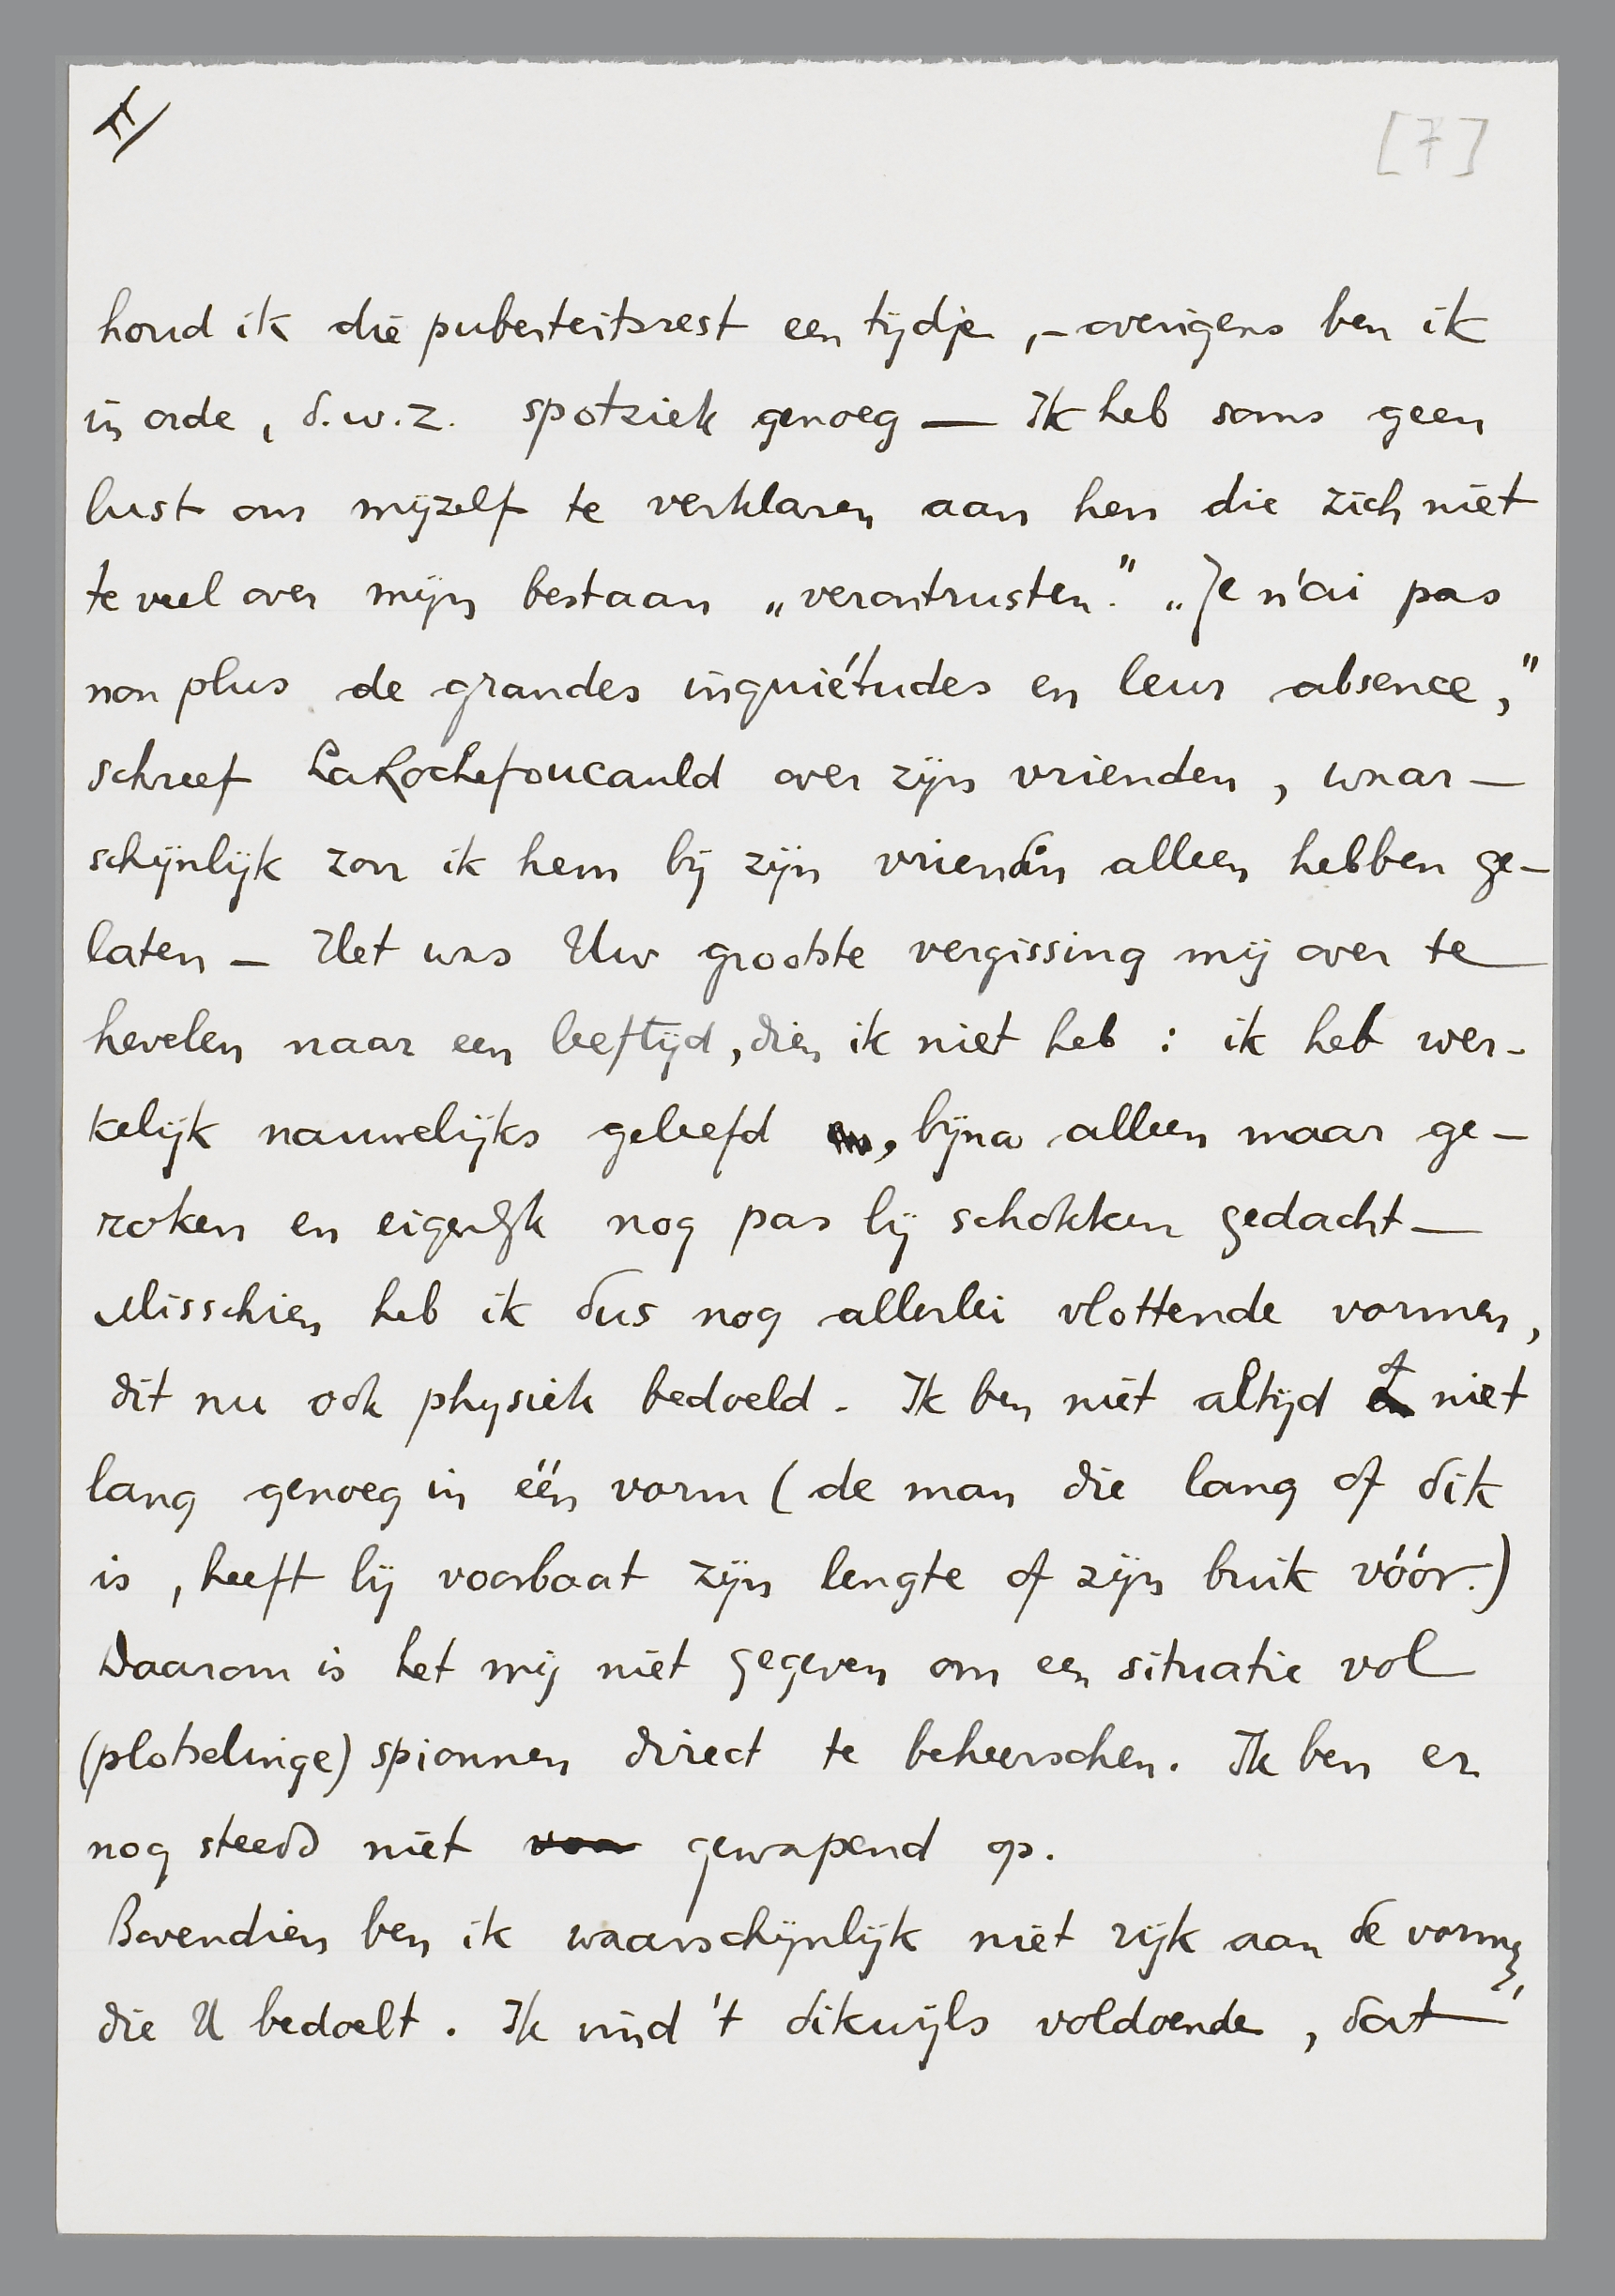 II
[7]
houd ik die puberteitsrest een tijdje, – overigens ben ik
in orde, d.w.z. spotziek genoeg — Ik heb soms geen
lust om mijzelf te verklaren aan hen die zich niet
te veel over mijn bestaan „verontrusten.” „Je n'ai pas
non plus de grandes inquiétudes en leur absence,”
schreef LaRochefoucauld over zijn vrienden, waar–
schijnlijk zou ik hem bij zijn vriendin alleen hebben ge–
laten – Het was Uw grootste vergissing mij over te
hevelen naar een leeftijd, dien ik niet heb : ik heb wer-
kelijk nauwelijks geleefd, bijna alleen maar ge–
roken en eigenlijk nog pas bij schokken gedacht –
Misschien heb ik dus nog allerlei vlottende vormen,
dit nu ook physiek bedoeld. Ik ben niet altijd of niet
lang genoeg in één vorm (de man die lang of dik
is, heeft bij voorbaat zijn lengte of zijn buik vóór.)
Daarom is het mij niet gegeven om een situatie vol
(plotselinge) spionnen direct te beheerschen. Ik ben er
nog steeds niet voor gewapend op.
Bovendien ben ik waarschijnlijk niet rijk aan de vormen,
die U bedoelt. Ik vind 't dikwijls voldoende, dat